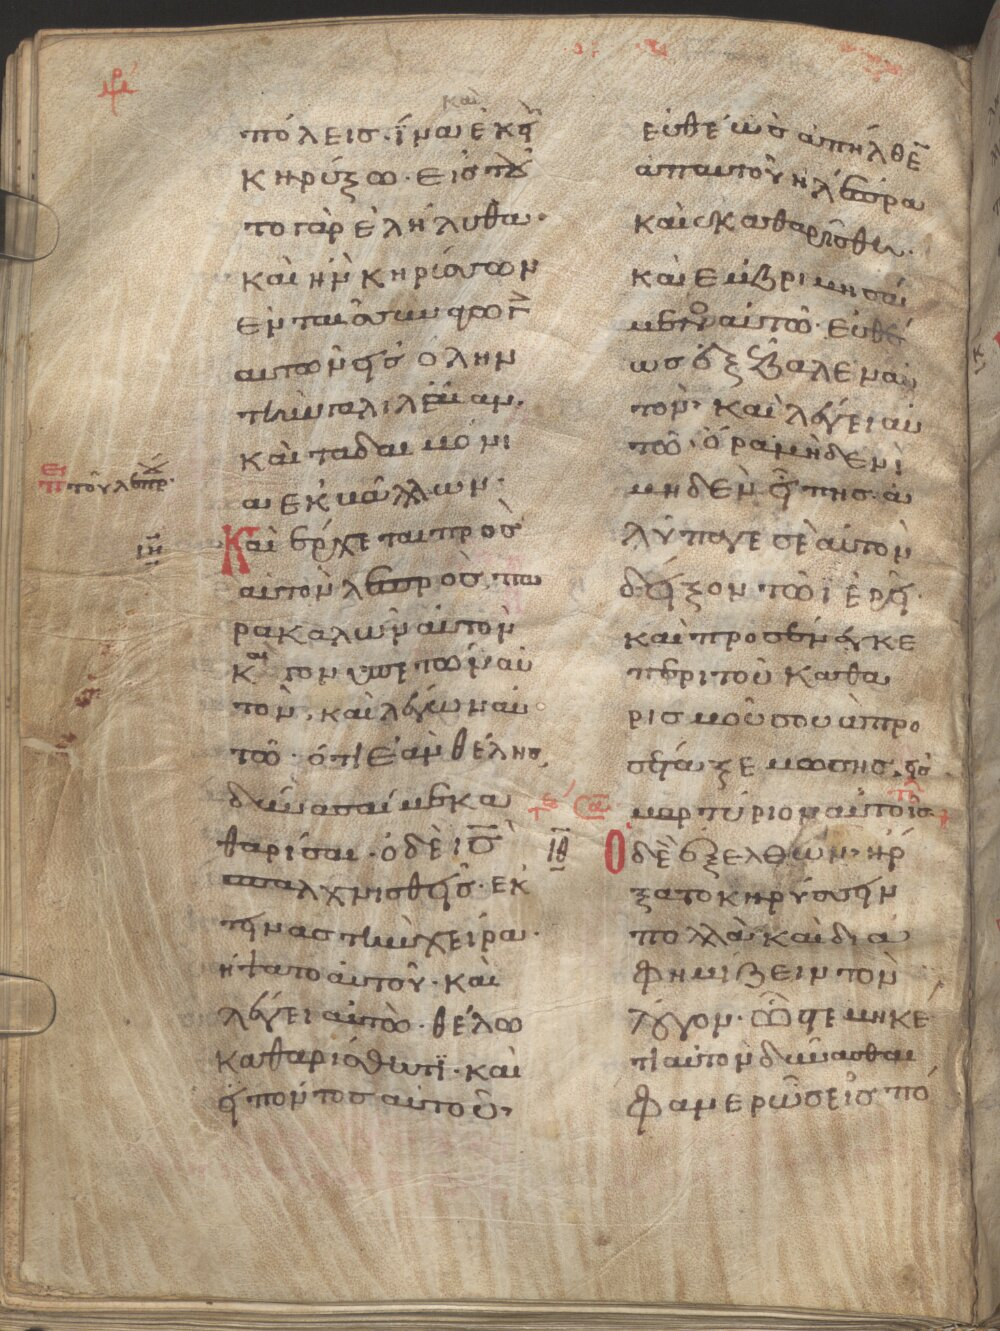 καὶ
πόλεισ · ἵνα ἐκεῖ
κηρύξω · εἰσ τοῦ
το γὰρ ἐλήλυθα ·
καὶ ἦν κηρύσσων
ἐν ταῖσ συναγωγ
αυτῶν εἰσ ὅλην
τὴν γαλιλαίαν ·
καὶ τὰ δαιμόνι
α ἐκβάλλων ·
Καὶ ἔρχεται πρὸσ
αὐτὸν λεπρὸσ, πα
ρακαλῶν αὐτὸν
Καὶ γονυπετῶν αὐ
τὸν, καὶ λέγων αὐ
τῶ · ὅτι ἐὰν θέλησ
δύνασαί με κα
θαρίσαι · ὁ δὲ ισ
σπλαχνισθεὶσ · ἐκ
τείνασ τὴν χεῖρα ·
ἥψατο αὐτοῦ · καὶ
λέγει αὐτῶ · θέλω
καθαρίσθητϊ · καὶ
εἰπόντοσ αὐτοῦ ·
τοῦ λεπρ
ιη
εὐθέωσ ἀπῆλθε
ἀπ αυτοῦ ἡ λέπρα
καὶ ἐκαθαρίσθη ·
καὶ ἐμβριμησά
μενοσ αὐτῶ · εὐθέ
ωσ ἐξέβαλεν αὐ
τόν · καὶ λέγει αὐ
τῶ · ὅρα μηδενὶ
μηδὲν εἴπησ · ἀ
λύπαγε σεαυτὸν
δεῖξον τῶ ἱερεῖ ·
καὶ προσένεγκε
περὶ τοῦ καθα
ρισμοῦ σου ἃ προ
σέταξε μωσησ, εἰσ
μαρτύριον αὐτοῖσ
ιθ
Ο δὲ ἐξελθὼν · ἤρ
ξατο κηρύσσειν
πολλὰ καὶ δια
φημίζειν τὸν
λόγον · ὥστε μηκέ
τι αὐτὸν δύνασθαι
φανερῶσ εἰσ πό